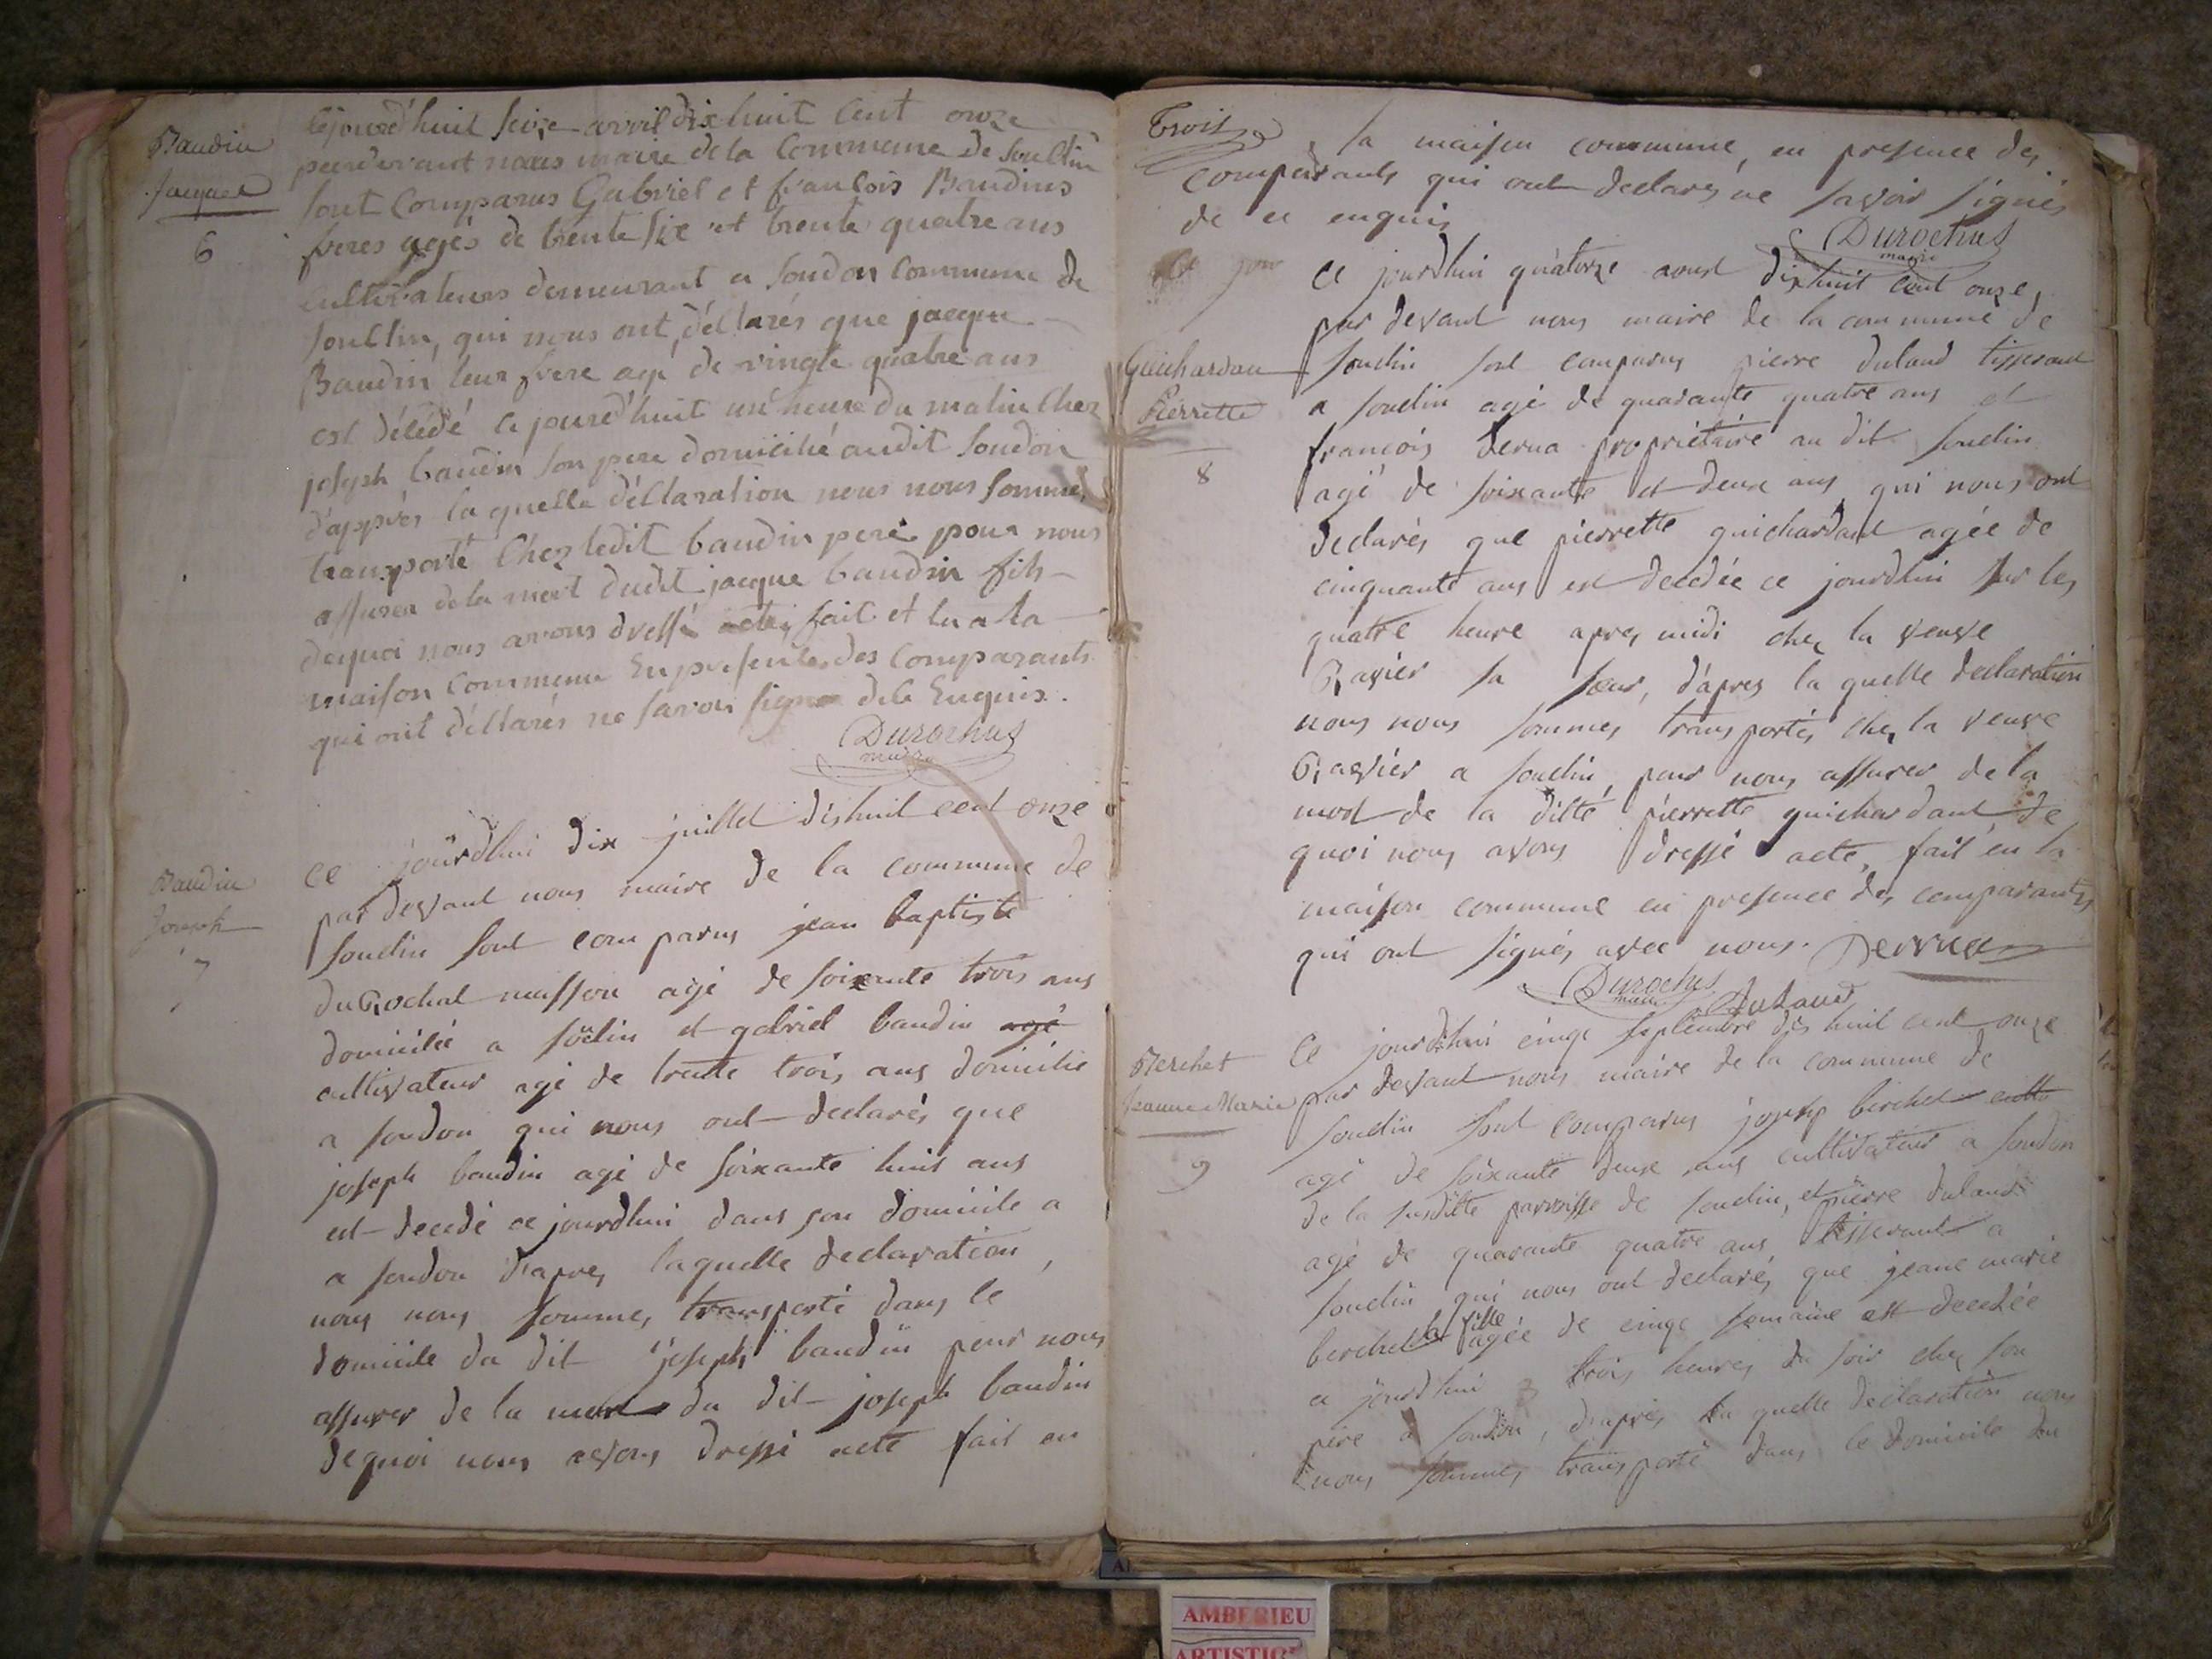 Baudin
Jacques
6
Cejourd'huit seize avril dix huit cent onze
pardevant nous maire dela Commune de Souclin
sont Comparus Gabriel et francois Baudins
freres agés de trente six et trente quatre ans
Cultivateurs demeurant a soudon Commune de
souclin, qui nous ont, déclarés que jacque
Baudin leur frere agé de vingte quatre ans
est décédé Ce jourd'huit un heure du matin Chez
joseph baudin son pere domicilié audit soudon
d'apprés la quelle déclaration nous nous sommes
transporté Chez ledit baudin pere pour nous
assurer dela mort dudit jacque baudin fils
dequoi nous avons dressé acte, fait et lu a la
maison Commune En presence des Comparants
qui ont déclarés ne savoir signer dece Enquis.
Durochus
maire
Baudin
Joseph
7
ce jourdhui dix juillet dishuit cent onze
par devant nous maire de la commune de
souclin sont comparus jean baptiste
duRochat masson agé de soixante trois ans
domicilié a soclin et gabriel baudin agé
cultivateur agé de trente trois ans domicilié
a soudon qui nous ont declarés que
joseph baudin agé de soixante huis ans
est decedé ce jourdhui dans son domicile a
a soudon d'apres laquelle declaration,
nous nous sommes transporté dans le
domicile du dit joseph baudin pour nous
assurer de la mort du dit joseph baudin
de quoi nous avons dressé acte fait en
Trois
la maison commune, en presence des
comparants qui ont declarés ne savoir signés
de ce enquis
Durochus
maire
ce jourdhui quatorze aoust dixhuit cent onze,
par devant nous maire de la commune de
Guichardau
Pierrette
8
souclin sont comparus pierre duland tisserant
a souclin agé de quarante quatre ans et
francois derua propriétaire au dit souclin
agé de soixante et deux ans qui nous ont
declarés que pierrette guichardant agée de
cinquante ans est decedée ce jourdhui sur les
quatre heure apres midi chez la veuve
Ravier sa sœur, d'apres la quelle declaration
nous nous sommes transportés chez la veuve
Ravier a souclin pour nous assurer de la
mort de la ditte pierrette guichardant de
quoi nous avons dressé acte, fait en la
maison commune en presence des comparants
qui ont signés avec nous. Derrua
Durochus
maire
Duland
Berchet
Jeanne Marie
9
Ce jourdhui cinqe septembre dis huit cent onze
par devant nous maire de la commune de
souclin sont comparus joseph berchet
agé de soixante deux ans cultivateur a soudon
de la susditte parroisse de souclin, et pierre duland
agé de quarante quatre ans, tisserant a
souclin qui nous ont declarés que jeane marie
berchet sa fille agée de cinqe semaine est decedée
ce jourdhui a trois heures du soir chez son
pere a soudon, d'aprés la quelle declaration nous
nous sommes transporté dans le domicile du
AMBERIEU
ARTISTIQUE